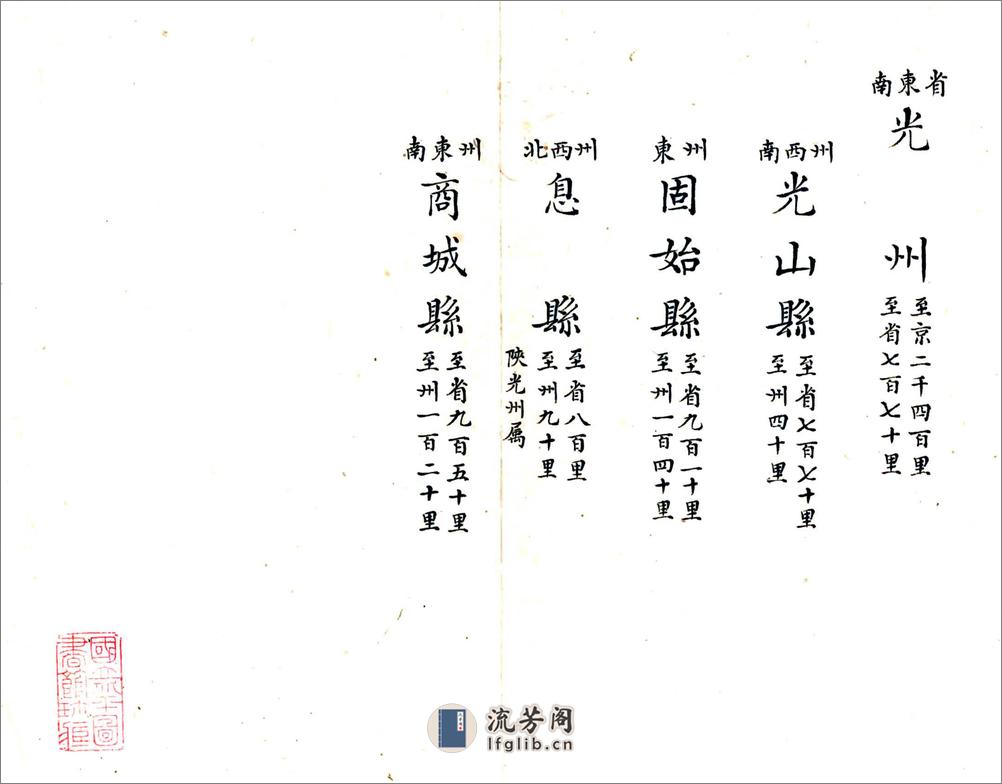 省東南
光州
至京二千四百里
至省七百七十里
州西南
光山縣
至省七百七十里
至州四十里
州東
固始縣
至省九百一十里
至州一百四十里
州西北
息縣
至省八百里
至州九十里
陝光州屬
州東南
商城縣
至省九百五十里
至州一百二十里
國立北平圖
書館
流芳阁
lfglib.cn